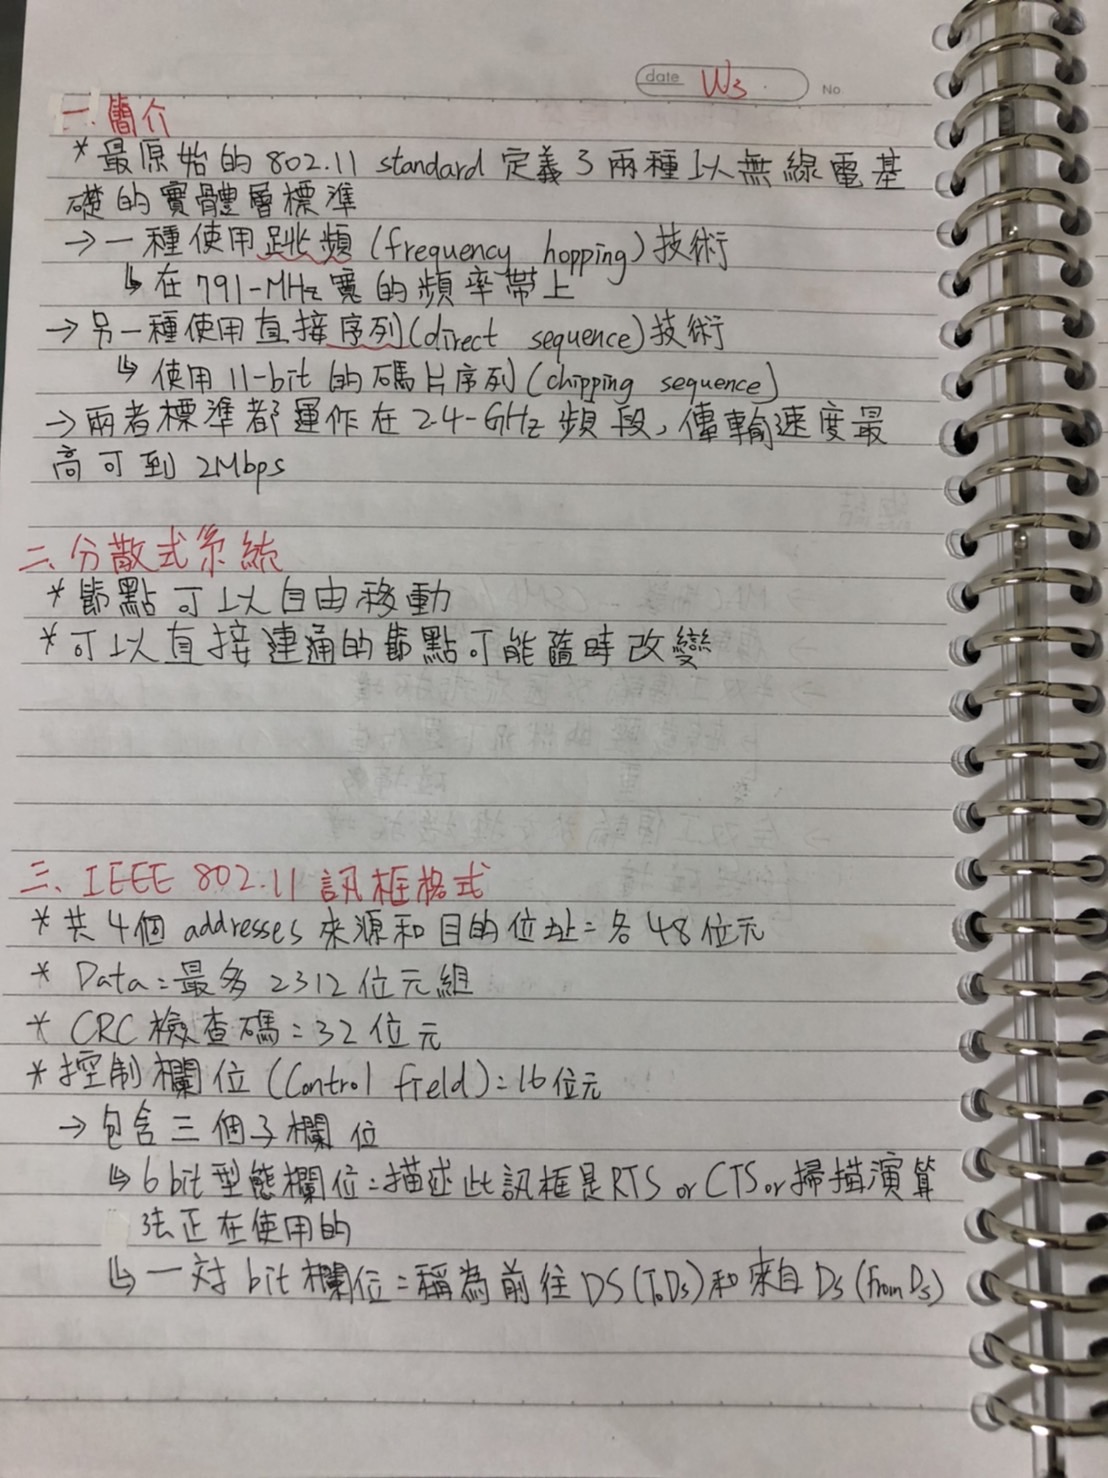 date W3.
No
一.簡介
* 最原始的 802.11 standard 定義了兩種以無線電基
礎的實體層標準
→ 一種使用跳頻 (frequency hopping) 技術
↳ 在 791-MHz 寬的頻率帶上
→ 另一種使用直接序列 (direct sequence) 技術
↳ 使用 11-bit 的碼片序列 (chipping sequence)
→ 兩者標準都運作在 2.4-GHz 頻段,傳輸速度最
高可到 2Mbps
二、分散式系統
* 節點可以自由移動
* 可以直接連通的節點可能隨時改變
三、IEEE 802.11 訊框格式
* 共 4個 addresses 來源和目的位址=各 48 位元
* Data=最多 2312 位元組
* CRC 檢查碼=32 位元
* 控制欄位 (Control field)=16位元
→ 包含三個子欄位
↳ 6 bit 型態欄位=描述此訊框是 RTS or CTS or 掃描演算
法正在使用的
↳ 一対 bit 欄位=稱為前往 DS (To Ds) 和來自 Ds (From Ds)